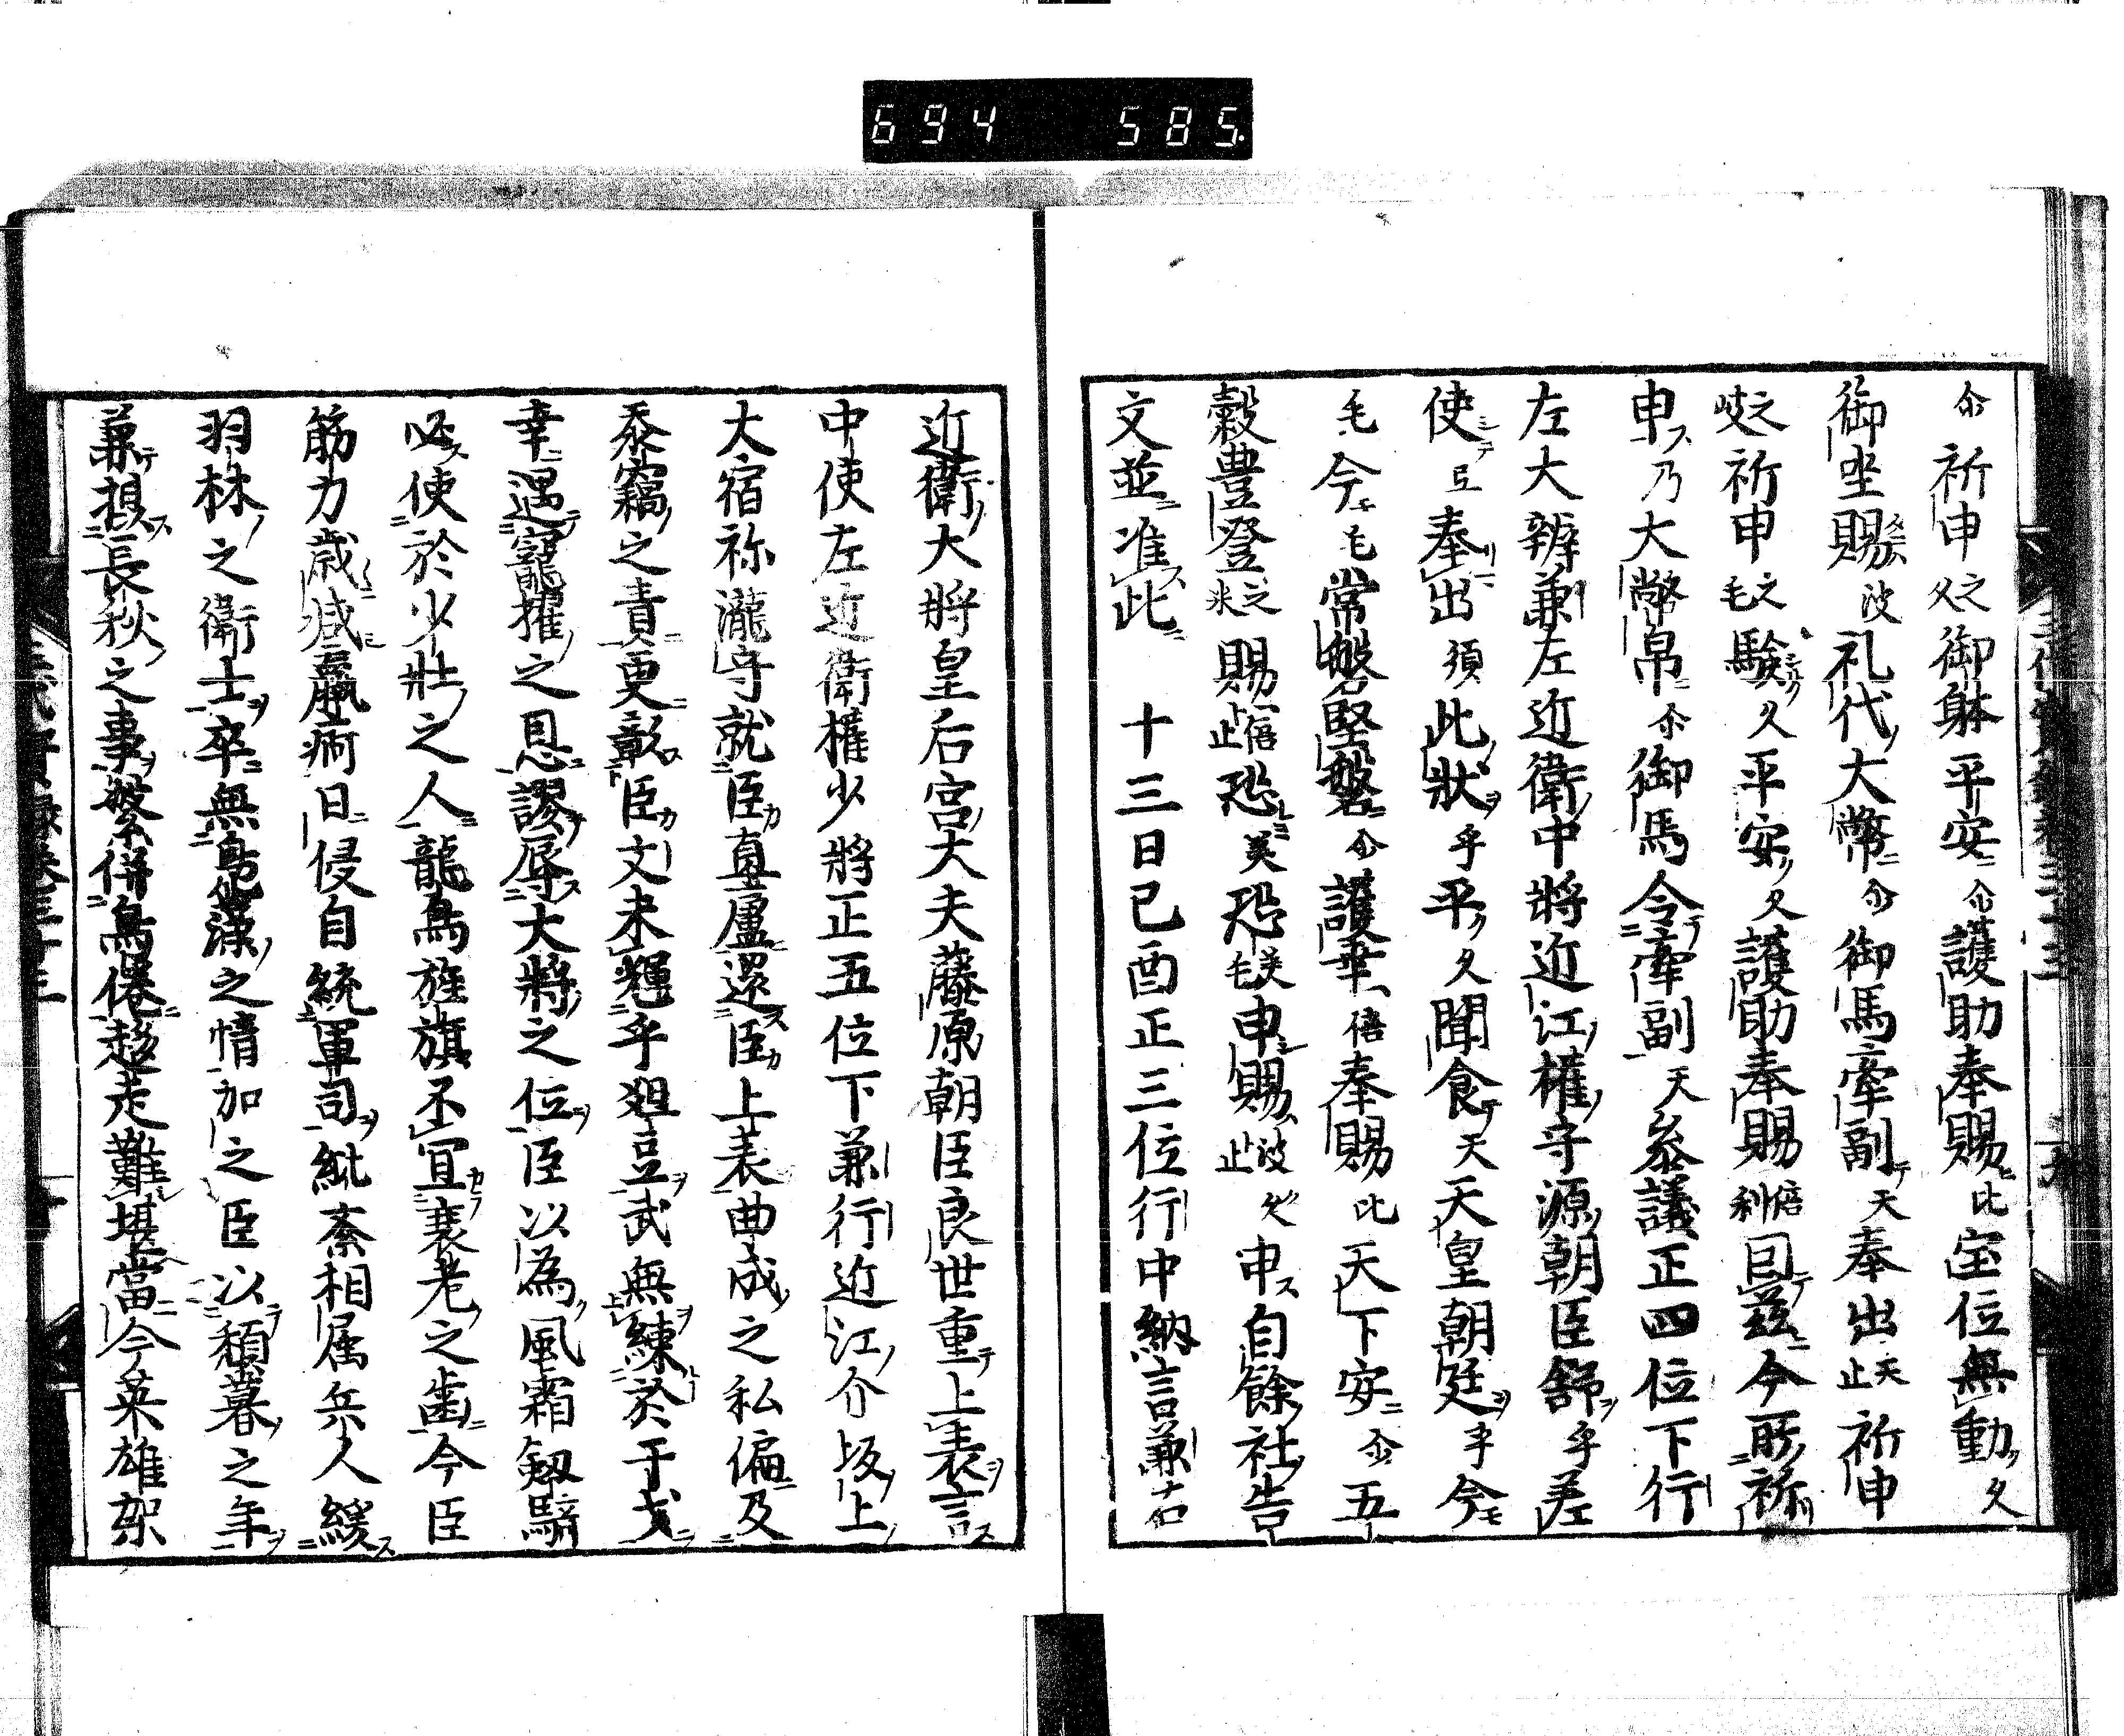 694 585
尒祈申之久御躰平安尒護助奉賜比宝位無動久
御坐賜波礼代大幣尒御馬牽副天奉出天止祈申
之岐祈申之毛驗久平安久護助奉賜倍利因茲今所祈
申乃大幣帛尒御馬令牽副天叅議正四位下行
左大辨兼左近衛中將近江權守源朝臣舒乎差
使弖奉出須此狀乎平久聞食天天皇朝廷乎今
毛今毛常磐堅磐尒護幸倍奉賜比天下安尒五
穀豊登之米賜倍止恐美恐美毛申賜波久止申自餘社告
文並准此　十三日己酉正三位行中納言兼右
近衛大將皇后宮大夫藤原朝臣良世重上表言
中使左近衛權少將正五位下兼行近江介坂上
大宿祢瀧守就臣直廬還臣上表曲成之私偏及
忝竊之責更彰臣文未輝乎爼豆武無練於于戈
幸遇寵擢之恩謬辱大將之位臣以為風霜劔騎
必使於少壯之人龍鳥旌旗丕宜衰老之齒今臣
筋力歲减羸病日侵自統軍司紕紊相属兵人緩
羽林之衛士卒無鳥漢之情加之臣以頽暮之年
兼揔長秋之事槃倂鳥倦趍走難堪當今英雄架